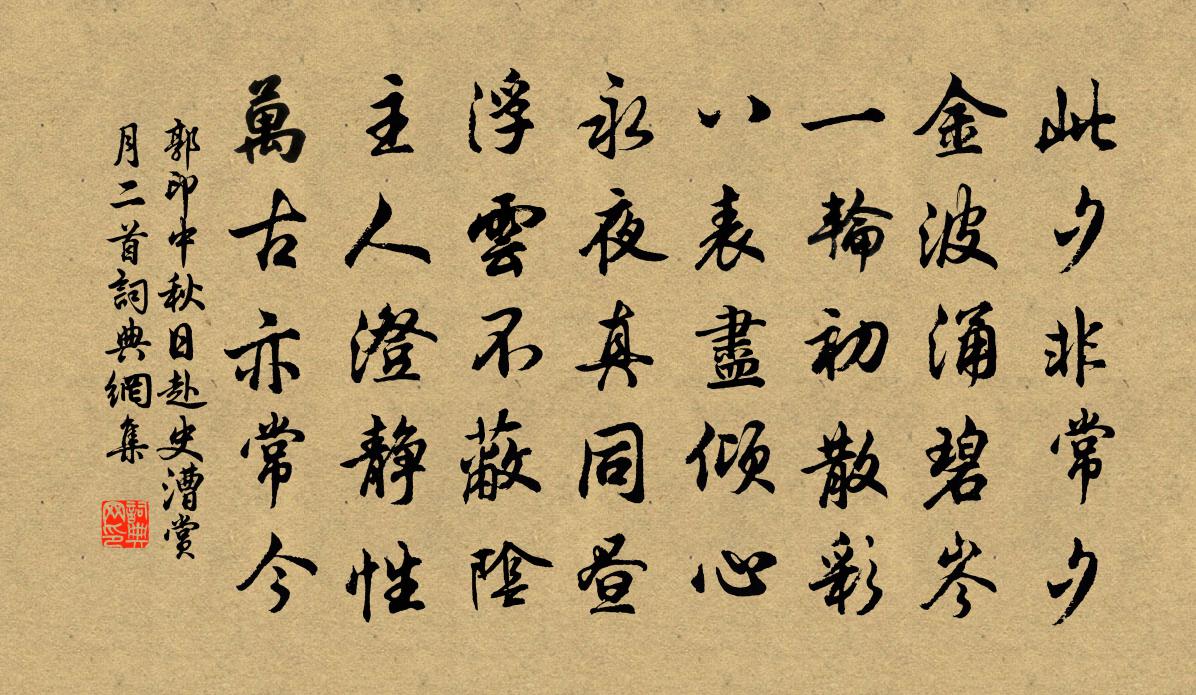 此夕非常夕
金波涌碧岑
一輪初散彩
八表盡傾心
永夜真同昼
浮雲不蔽陰
主人澄靜性
萬古亦常今
郭印中秋日赴史漕賞
月二首詞典網集
詞典
网印